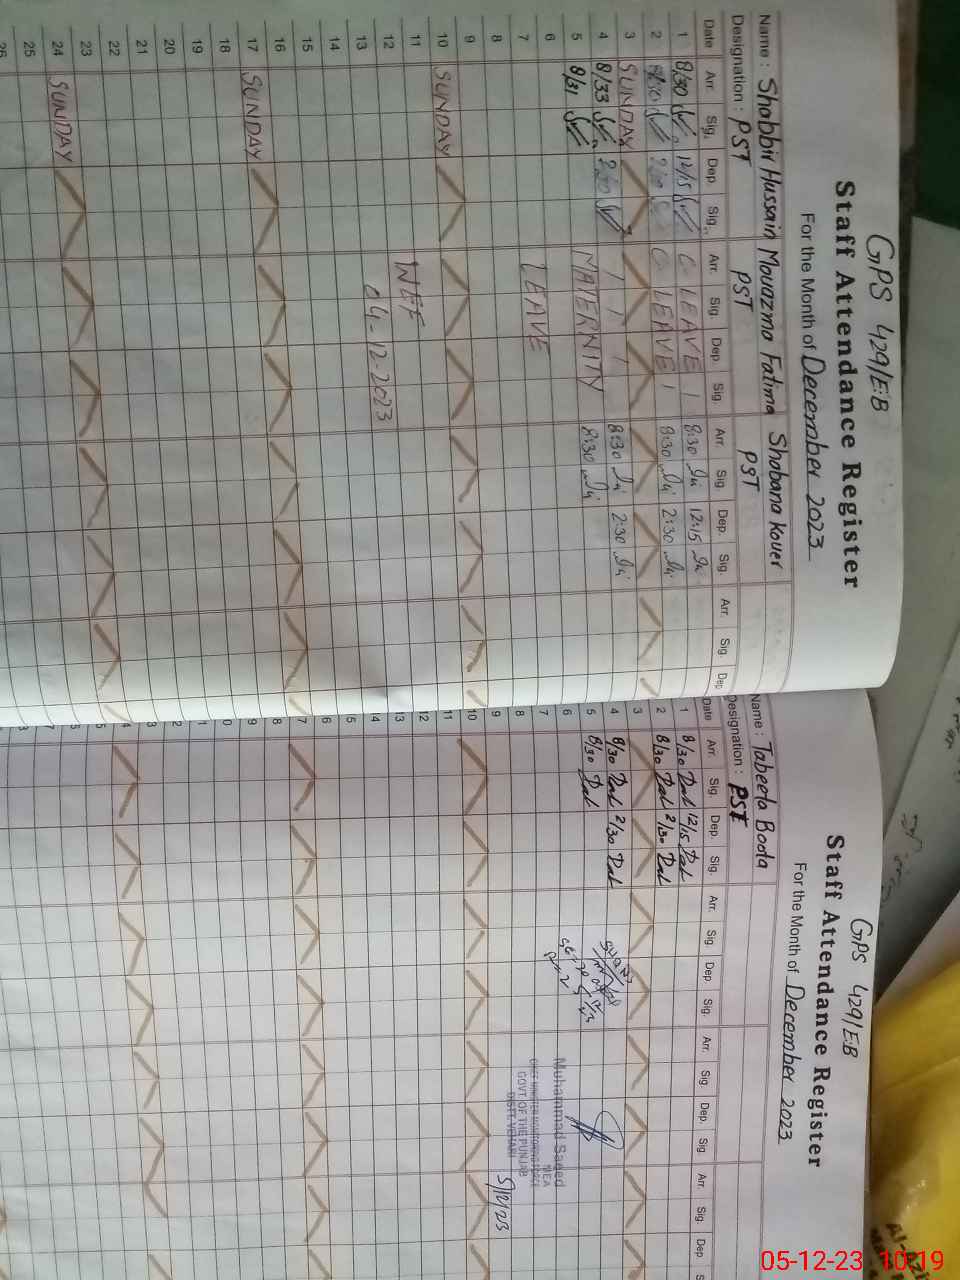 GPS 429/E:B
Staff Attendance Register
For the Month of December 2023
Name : Shabbir Hussain Mouazma Fatima Shabana Kouer
Designation : PST PST PST
Date Arr. Sig. Dep. Sig. Arr. Sig. Dep. Sig. Arr. Sig. Dep. Sig. Arr. Sig. Dep
1 8/30 12/15 C- LEAVE 8:30 12:15
2 8/30 2/30 C- LEAVE 8:30 2:30
3 SUNDAY
4 8/33 2:30 8:30 2:30
5 8/31 MATERNITY 8:30
6
7 LEAVE
8
9
10 SUNDAY
11
12 WEF
13 04-12-2023
14
15
16
17 SUNDAY
18
19
20
21
22
23
24 SUNDAY
25
26
GPS 429/E:B
Staff Attendance Register
For the Month of December 2023
Name : Tabeeta Boota
Designation : PST
Date Arr. Sig. Dep. Sig. Arr. Sig. Dep. Sig. Arr. Sig. Dep. Sig. Arr. Sig. Dep S
1 8/30 12/15
2 8/30 2/30
3
4 8/30 2/30
5 8/30
6
7
8
9
10
11
12
13
14
5
6
7
8
9
0
1
2
3
4
5
Muhammad Saeed
MEA
CHIEF MINISTER MONITORING FORCE
GOVT. OF THE PUNJAB
DISTT. VEHARI
5/12/23
05-12-23 10:19